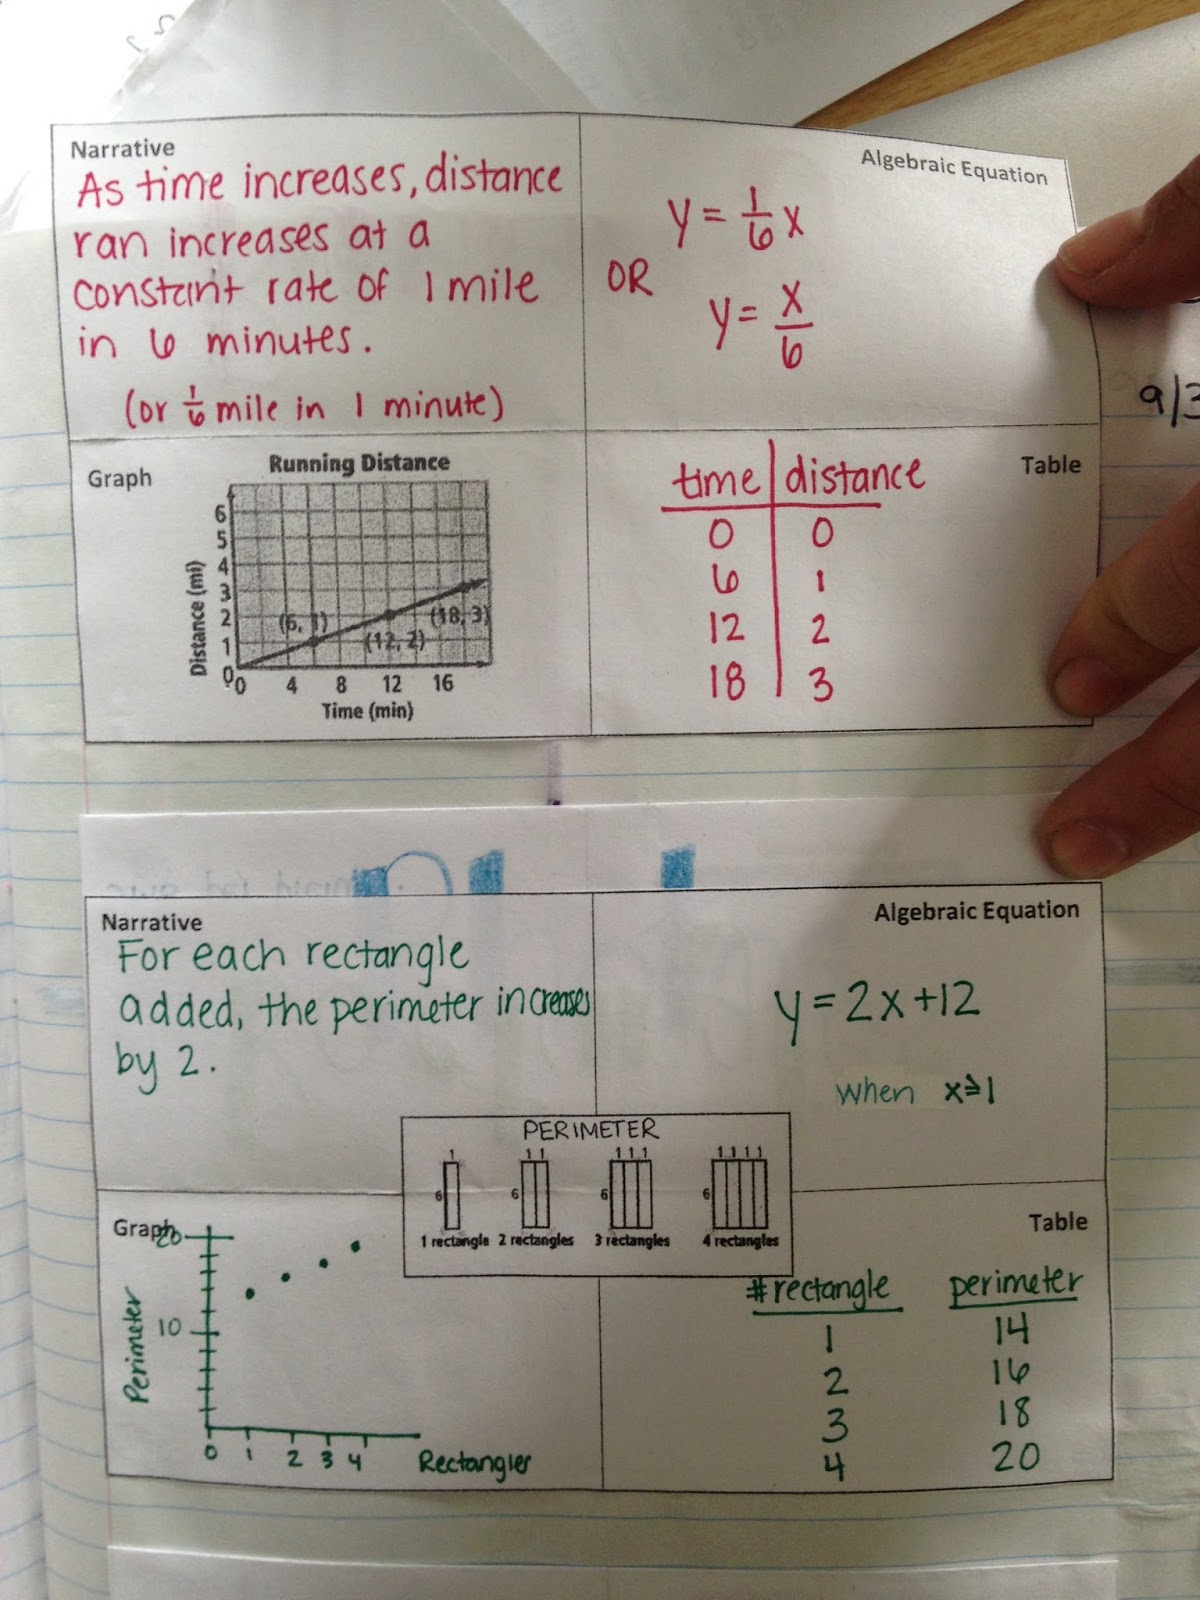 Narrative
As time increases, distance
ran increases at a
constant rate of 1 mile
in 6 minutes.
(or 1/6 mile in 1 minute)
Algebraic Equation
y = 1/6 x
OR
y = x/6
9/3
Graph
Running Distance
Distance (mi)
6
5
4
3
2
1
0
(6, 1)
(12, 2)
(18, 3)
0 4 8 12 16
Time (min)
Table
time distance
0 0
6 1
12 2
18 3
Narrative
For each rectangle
added, the perimeter increases
by 2.
Algebraic Equation
y = 2x+12
when x≥1
PERIMETER
1 1 1 1 1 1 1 1 1 1
6 6 6 6
1 rectangle 2 rectangles 3 rectangles 4 rectangles
Graph
20
10
Perimeter
0 1 2 3 4
Rectangles
Table
#rectangle perimeter
1 14
2 16
3 18
4 20